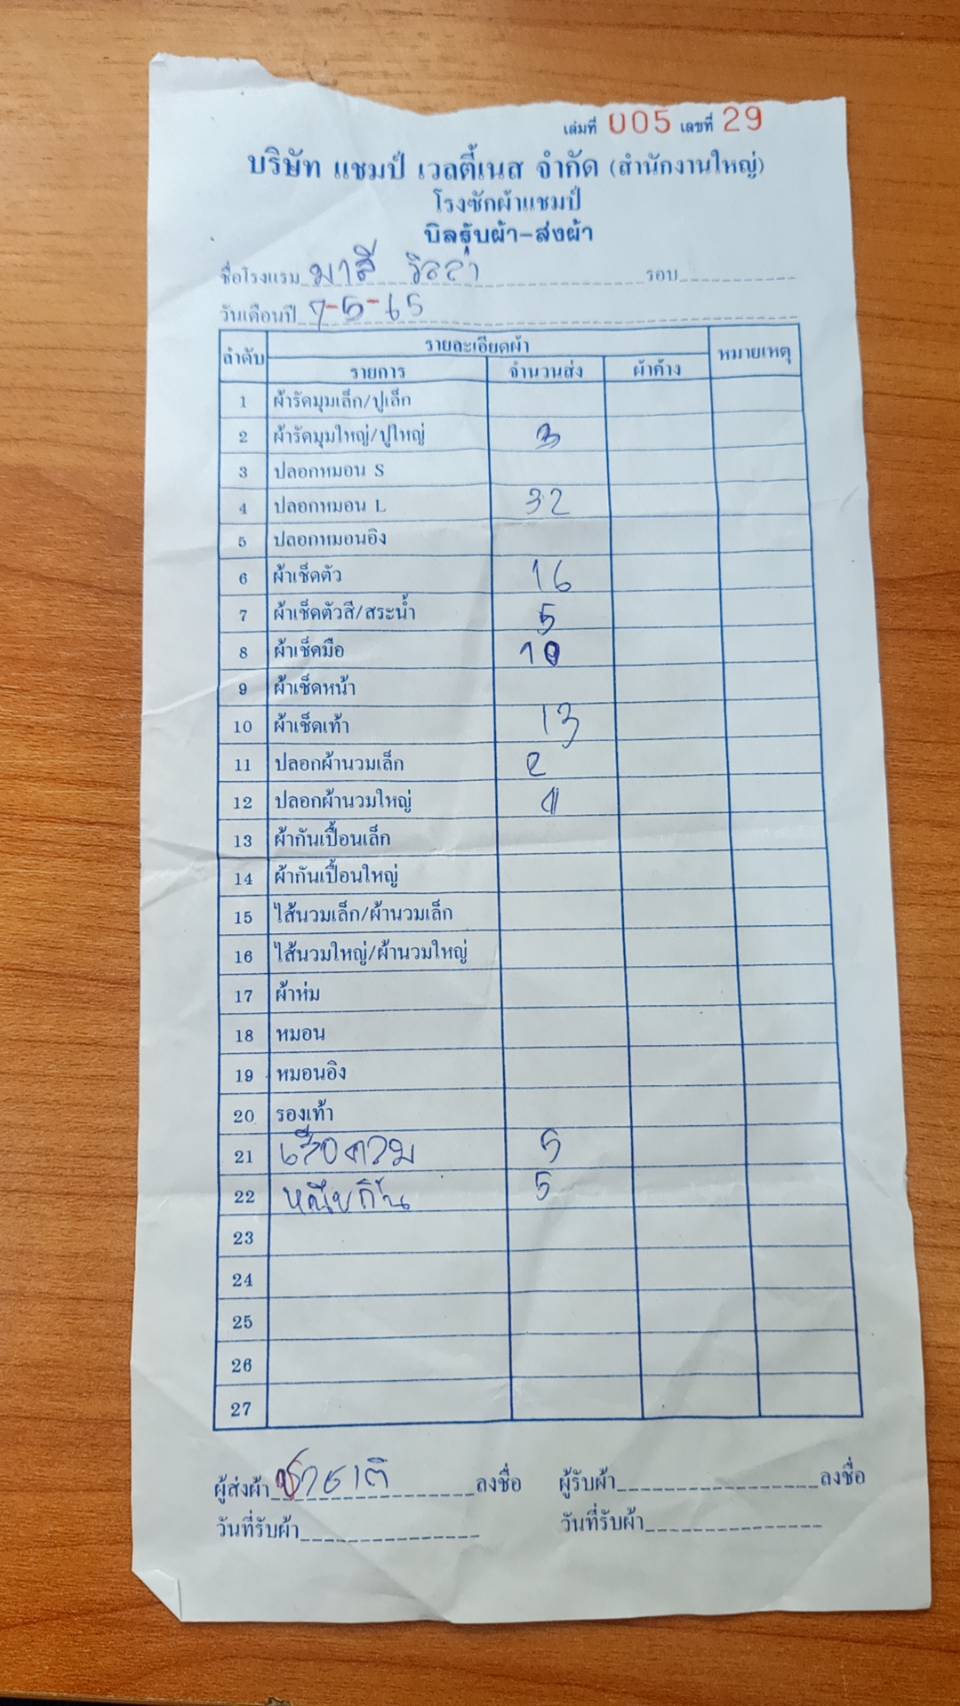 เล่มที่ 005 เลขที่ 29
บริษัท แชมป์ เวลตี้เนส จำกัด (สำนักงานใหญ่)
โรงซักผ้าแชมป์
บิลรับผ้า-ส่งผ้า
ชื่อโรงแรม มาลี วิลล่า รอบ
วันเดือนปี 7-5-65
ลำดับ รายละเอียดผ้า หมายเหตุ
รายการ จำนวนส่ง ผ้าค้าง
1 ผ้ารัดมุมเล็ก/ปูเล็ก
2 ผ้ารัดมุมใหญ่/ปูใหญ่ 3
3 ปลอกหมอน S
4 ปลอกหมอน L 32
5 ปลอกหมอนอิง
6 ผ้าเช็ดตัว 16
7 ผ้าเช็ดตัวสี/สระน้ำ 5
8 ผ้าเช็ดมือ 10
9 ผ้าเช็ดหน้า
10 ผ้าเช็ดเท้า 13
11 ปลอกผ้านวมเล็ก 2
12 ปลอกผ้านวมใหญ่
13 ผ้ากันเปื้อนเล็ก
14 ผ้ากันเปื้อนใหญ่
15 ไส้นวมเล็ก/ผ้านวมเล็ก
16 ไส้นวมใหญ่/ผ้านวมใหญ่
17 ผ้าห่ม
18 หมอน
19 หมอนอิง
20 รองเท้า
21 5
22 5
23
24
25
26
27
ผู้ส่งผ้า ลงชื่อ ผู้รับผ้า ลงชื่อ
วันที่รับผ้า วันที่รับผ้า